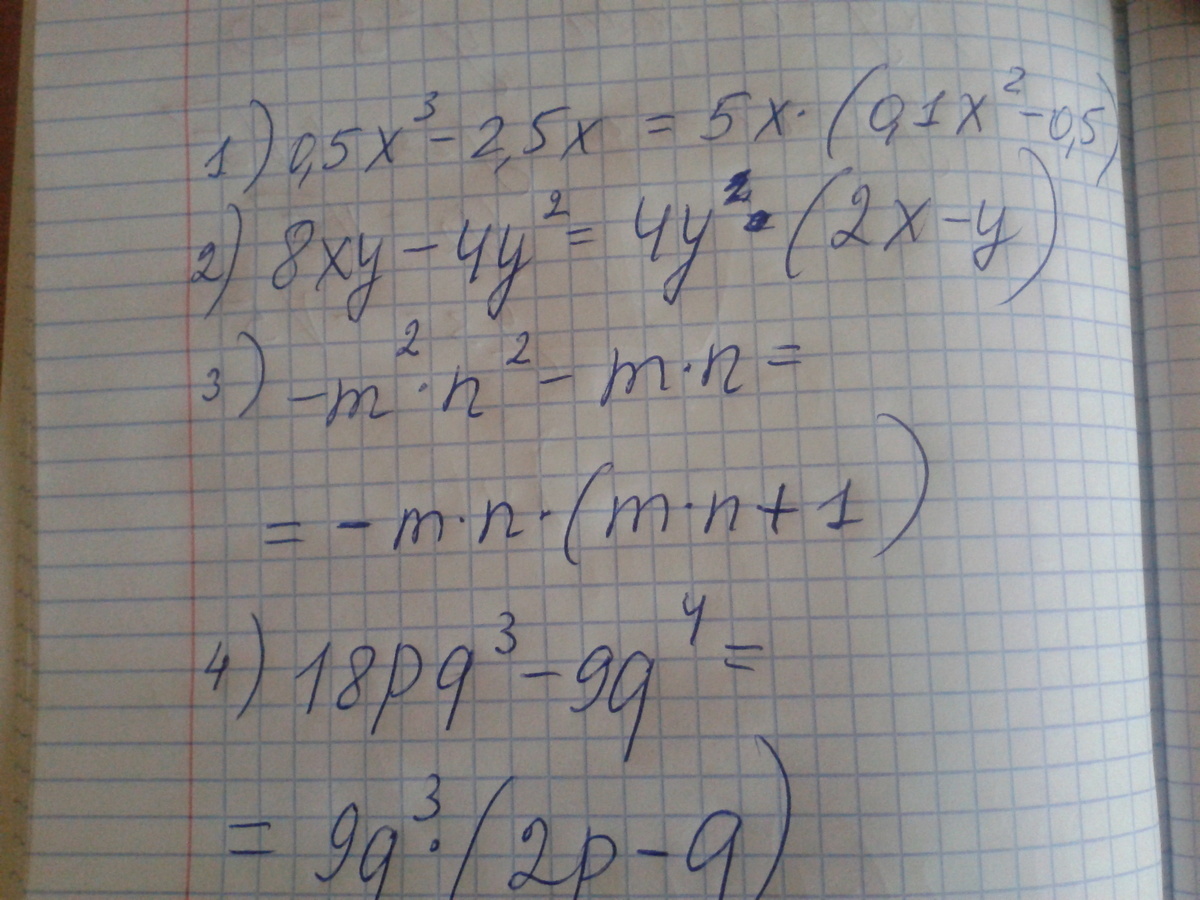 1) 0,5x³ - 2,5x = 5x·(0,1x² - 0,5)
2) 8xy - 4y² = 4y·(2x - y)
3) -m²·n² - m·n =
= -m·n·(m·n + 1)
4) 18pq³ - 9q⁴ =
= 9q³·(2p - q)